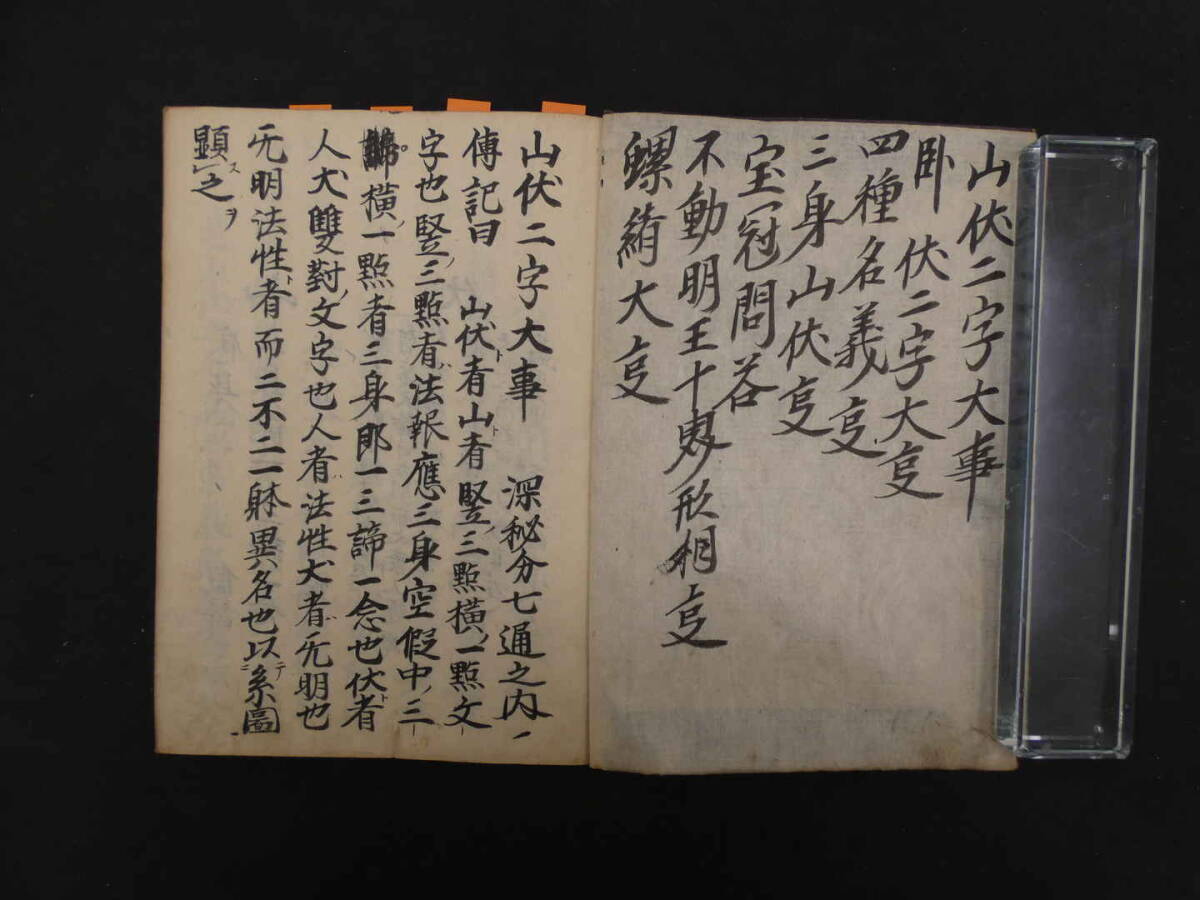 山伏二字大事
卧伏二字大叓
四種名義叓
三身山伏叓
宝冠問荅
不動明王十界形相叓
螺緒大叓
山伏二字大事 深秘分七通之内
傳記曰 山伏者山者竪三點橫一點文
字也竪三點者法報應三身空假中三
諦橫一點者三身即一三諦一念也伏者
人犬雙對文字也人者法性犬者旡明也
旡明法性者而二不二一躰異名也以系圖
顕之